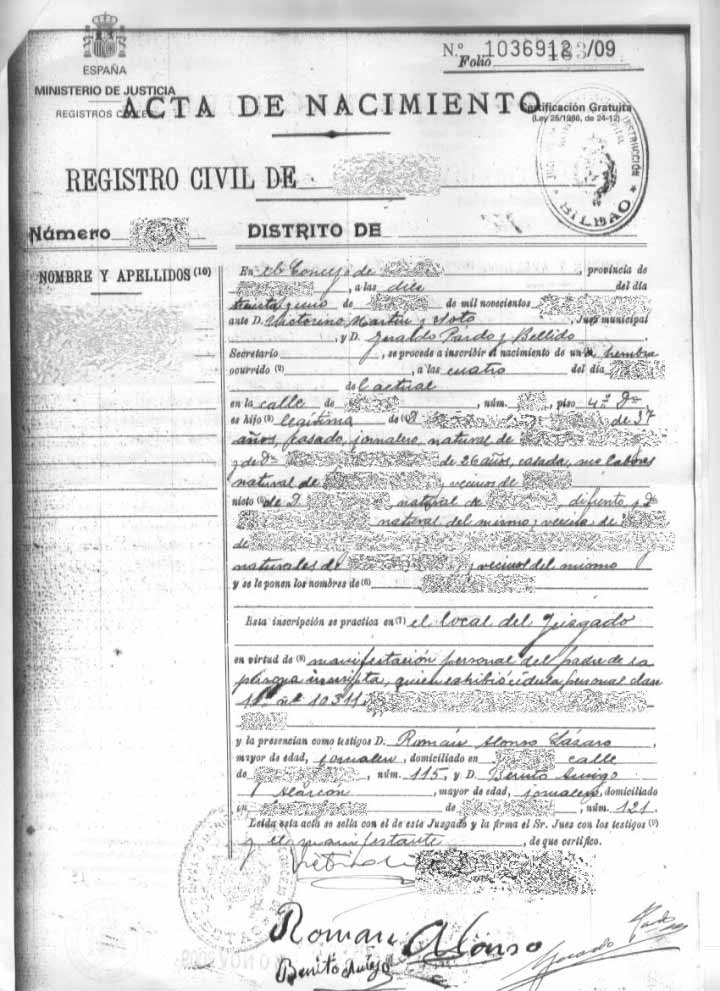 N.º 1036912 /09
Folio 183
ESPAÑA
MINISTERIO DE JUSTICIA
REGISTROS
ACTA DE NACIMIENTO
Certificación Gratuita
(Ley 25/1986, de 24-12)
BILBAO
REGISTRO CIVIL DE
Número
DISTRITO DE
NOMBRE Y APELLIDOS (10)
En el Concejo de , provincia de
, a las diez del día
treinta y uno de de mil novecientos
ante D. Victorino Martín y Soto , Juez municipal
, y D. Geraldo Pardo y Bellido
Secretario , se procede a inscribir el nacimiento de una hembra
ocurrido (2) , a las cuatro del día
del actual
en la calle de , núm. , piso 4.º
es hijo (3) legítima de D. de 37
años, casado, jornalero, natural de
y de Dª de 26 años, casada, sus labores
natural de y vecinos de
nieto de D. natural de , difunto, y Dª
natural del mismo y vecina de
de
naturales de y vecinos del mismo
y se le ponen los nombres de (6)
Esta inscripción se practica en (7) el local del Juzgado
en virtud de (8) manifestación personal del padre de la
inscripta, quien exhibió cédula personal clase
11ª nº 10311
y la presencian como testigos D. Román Alonso Lázaro ,
mayor de edad, jornalero, domiciliado en calle
de , núm. 115, y D. Benito
Alarcón , mayor de edad, jornalero, domiciliado
en de , núm. 121
Leída esta acta se sella con el de este Juzgado y la firma el Sr. Juez con los testigos (9)
y el manifestante , de que certifico.
Roman Alonso
Benito
Gerardo Pardo